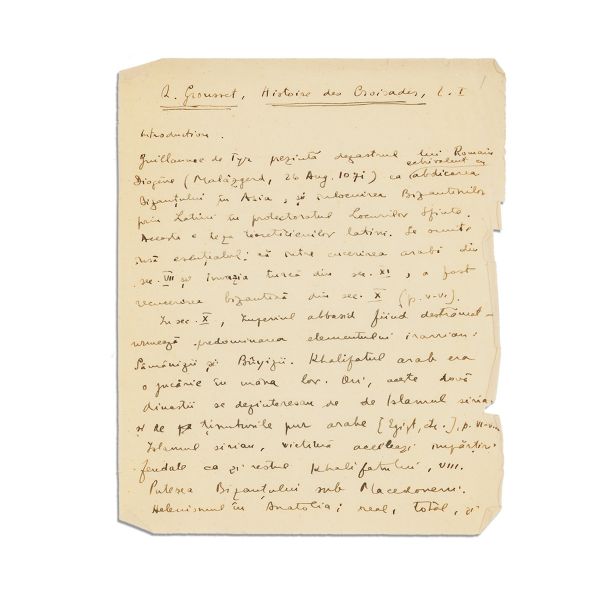 R. Grousset, Histoire des Croisades, t. I
1
Introduction.
Guillaume de Tyr prezintă dezastrul lui Roman
echivalent cu
Diogène (Malâzgerd, 26 Aug. 1071) ca abdicarea
Bizanțului în Asia, și înlocuirea Bizantinilor
prin Latini în protectoratul Locurilor Sfinte.
Aceasta e teza teoreticienilor latini. Se omite
însă esențialul: că între cucerirea arabă din
sec. VII și invazia turcă din sec. XI, a fost
recucerirea bizantină din sec. X (p. V-VI).
În sec. X, Imperiul abbasid fiind destrămat -
urmează predominarea elementului iranian:
Sâmânizii și Bûyizii. Khalifatul arab era
o jucărie în mâna lor. Ori, aceste două
dinastii se dezinteresau de de Islamul sirian
și de ținuturile pur arabe [Egipt, etc.], p. VI-VII.
Islamul sirian, victimă aceleași împărțiri
feudale ca și restul Khalifatului, VIII.
Puterea Bizanțului sub Macedoneni.
Helenismul în Anatolia; real, total, și